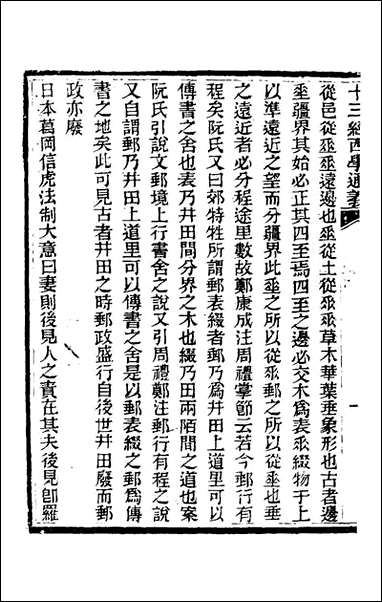 十三經西學通義
從邑從𠂹𠂹遠邊也𠂹從土從𠂹𠂹草木華葉垂象形也古者邊
垂疆界其始必正其四至焉四至之邊必交木爲表𠂹綴物于上
以準遠近之望而分疆界此垂之所以從𠂹郵之所以從垂也垂
之遠近者必分程途里數故鄭康成注周禮掌節云若今郵行有
程矣阮氏又曰郊特牲所謂郵表綴者郵乃爲井田上道里可以
傳書之舍也表乃井田間分界之木也綴乃田兩陌間之道也案
阮氏引說文郵境上行書舍之說又引周禮鄭注郵行有程之說
又自謂郵乃井田上道里可以傳書之舍是以郵表綴之郵爲傳
書之地矣此可見古者井田之時郵政盛行自後世井田廢而郵
政亦廢
日本葛岡信虎法制大意曰妻則後見人之責在其夫後見卽羅